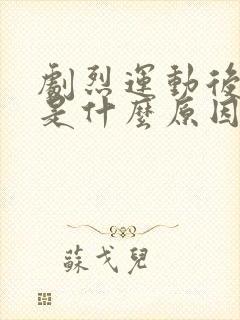 劇烈運動後
是什麼原因
蘇戈兒